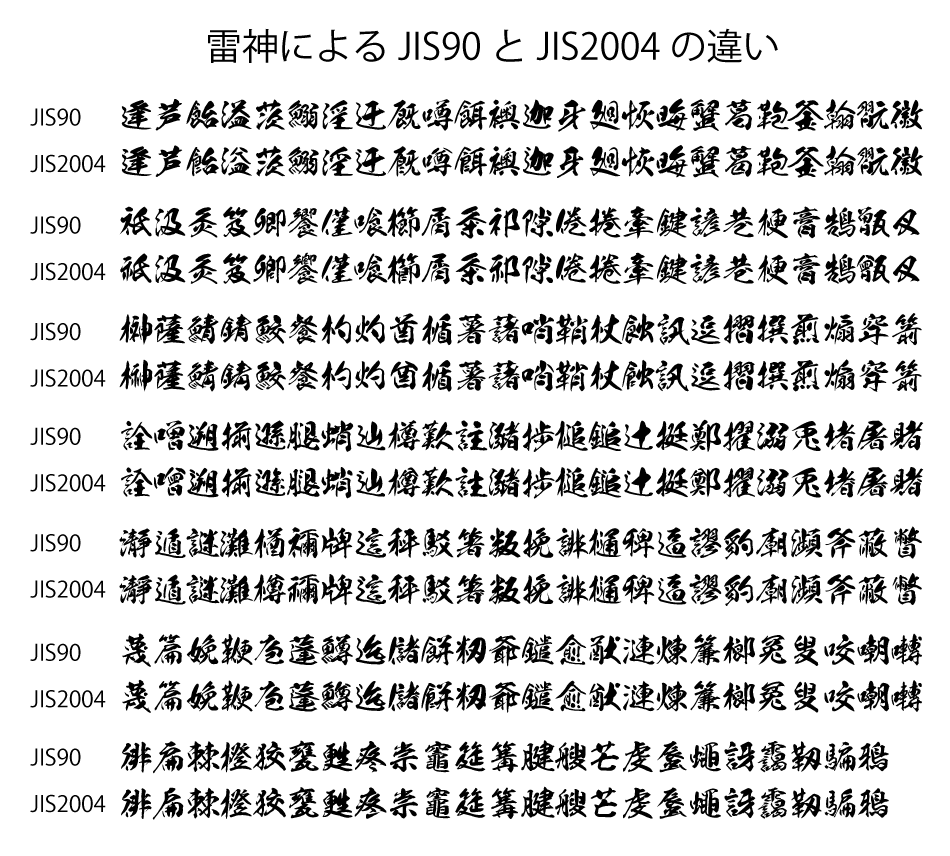 雷神による JIS90 と JIS2004 の違い
JIS90 逢芦飴溢茨鰯淫迂厩噂餌襖迦牙廻恢晦蟹葛鞄釜翰翫徽
JIS2004 逢芦飴溢茨鰯淫迂厩噂餌襖迦牙廻恢晦蟹葛鞄釜翰翫徽
JIS90 祇汲灸笈卿饗僅喰櫛屑粂祁隙倦捲牽鍵諺巷梗膏鵠甑叉
JIS2004 祇汲灸笈卿饗僅喰櫛屑粂祁隙倦捲牽鍵諺巷梗膏鵠甑叉
JIS90 榊薩鯖錆鮫餐杓灼酋楯薯藷哨鞘杖蝕訊逗摺撰煎煽穿箭
JIS2004 榊薩鯖錆鮫餐杓灼酋楯薯藷哨鞘杖蝕訊逗摺撰煎煽穿箭
JIS90 詮噌遡揃遜腿蛸辿樽歎註瀦捗槌鎚辻挺鄭擢溺兎堵屠賭
JIS2004 詮噌遡揃遜腿蛸辿樽歎註瀦捗槌鎚辻挺鄭擢溺兎堵屠賭
JIS90 瀞遁謎灘楢禰牌這秤駁箸叛挽誹樋稗逼謬豹廟瀕斧蔽瞥
JIS2004 瀞遁謎灘楢禰牌這秤駁箸叛挽誹樋稗逼謬豹廟瀕斧蔽瞥
JIS90 蔑篇娩鞭庖蓬鱒迄儲餅籾爺鑓愈猷漣煉簾榔冤叟咬嘲囀
JIS2004 蔑篇娩鞭庖蓬鱒迄儲餅籾爺鑓愈猷漣煉簾榔冤叟咬嘲囀
JIS90 徘扁棘橙狡甕甦疼祟竈筵篝腱艘芒虔蜃蠅訝靄靱騙鴉
JIS2004 徘扁棘橙狡甕甦疼祟竈筵篝腱艘芒虔蜃蠅訝靄靱騙鴉